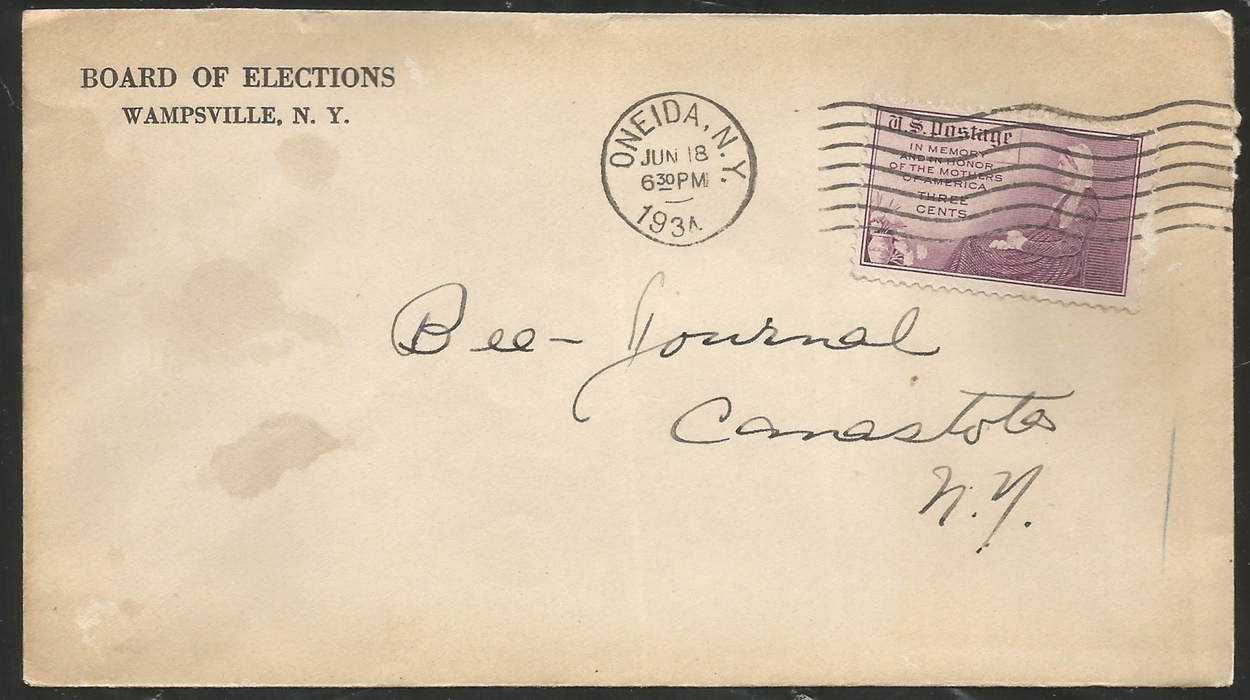 BOARD OF ELECTIONS
WAMPSVILLE, N. Y.
ONEIDA, N.Y.
JUN 18
6 30 PM
1934
U.S. Postage
IN MEMORY
AND IN HONOR
OF THE MOTHERS
OF AMERICA
THREE
CENTS
Bee-Journal
Canastota
N.Y.